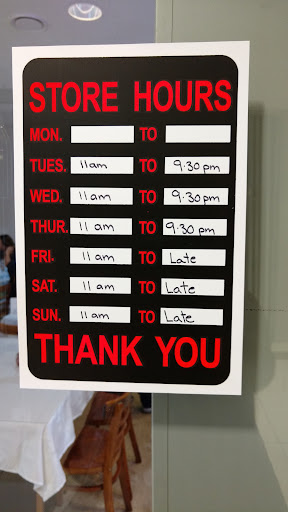 STORE HOURS
MON. TO
TUES. 11am TO 9.30pm
WED. 11am TO 9.30pm
THUR. 11am TO 9.30pm
FRI. 11am TO Late
SAT. 11am TO Late
SUN. 11am TO Late
THANK YOU